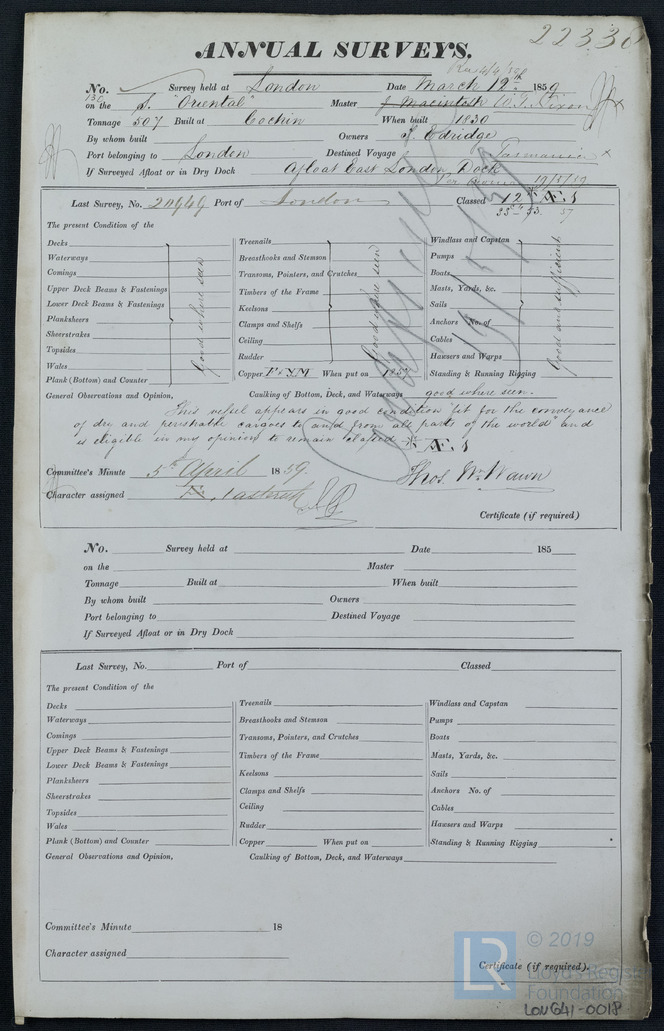 22330
ANNUAL SURVEYS.
No. Survey held at London Date March 12th 1859
130 on the S. "Oriental" Master J. Macintosh W. T. Dixon
Tonnage 507 Built at Cochin When built 1830
By whom built Owners J Edridge
Port belonging to London Destined Voyage Tasmania
If Surveyed Afloat or in Dry Dock Afloat East London Dock
19/3/59
Last Survey, No. 20949 Port of London Classed 12 Æ 1
53. 57
The present Condition of the
Decks
Waterways
Comings
Upper Deck Beams & Fastenings
Lower Deck Beams & Fastenings
Planksheers
Sheerstrakes
Topsides
Wales
Plank (Bottom) and Counter
Good where seen
Treenails
Breasthooks and Stemson
Transoms, Pointers, and Crutches
Timbers of the Frame
Keelsons
Clamps and Shelfs
Ceiling
Rudder
Good where seen
Copper F & YM When put on 1857
Windlass and Capstan
Pumps
Boats
Masts, Yards, &c.
Sails
Anchors No. of
Cables
Hawsers and Warps
Standing & Running Rigging
Good and sufficient
General Observations and Opinion, Caulking of Bottom, Deck, and Waterways good where seen.
This vessel appears in good condition "fit for the conveyance
of dry and perishable cargoes to and from all parts of the world" and
is eligible in my opinion to remain classed * Æ 1
Committee's Minute 5th April 1859.
Thos. W. Wawn
Character assigned
Certificate (if required)
No. Survey held at Date 185
on the Master
Tonnage Built at When built
By whom built Owners
Port belonging to Destined Voyage
If Surveyed Afloat or in Dry Dock
Last Survey, No. Port of Classed
The present Condition of the
Decks
Waterways
Comings
Upper Deck Beams & Fastenings
Lower Deck Beams & Fastenings
Planksheers
Sheerstrakes
Topsides
Wales
Plank (Bottom) and Counter
Treenails
Breasthooks and Stemson
Transoms, Pointers, and Crutches
Timbers of the Frame
Keelsons
Clamps and Shelfs
Ceiling
Rudder
Copper When put on
Windlass and Capstan
Pumps
Boats
Masts, Yards, &c.
Sails
Anchors No. of
Cables
Hawsers and Warps
Standing & Running Rigging
General Observations and Opinion, Caulking of Bottom, Deck, and Waterways
Committee's Minute 18
Character assigned
Certificate (if required).
LR © 2019
Lloyd's Register
Foundation
LON641-0018